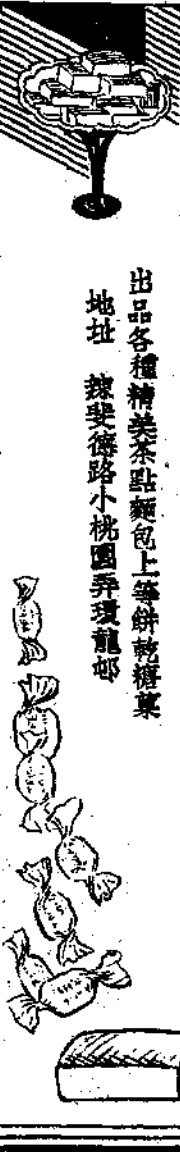 出品各種精美茶點麵包上等餅乾糖菓
地址 辣斐德路小桃園弄環龍邨